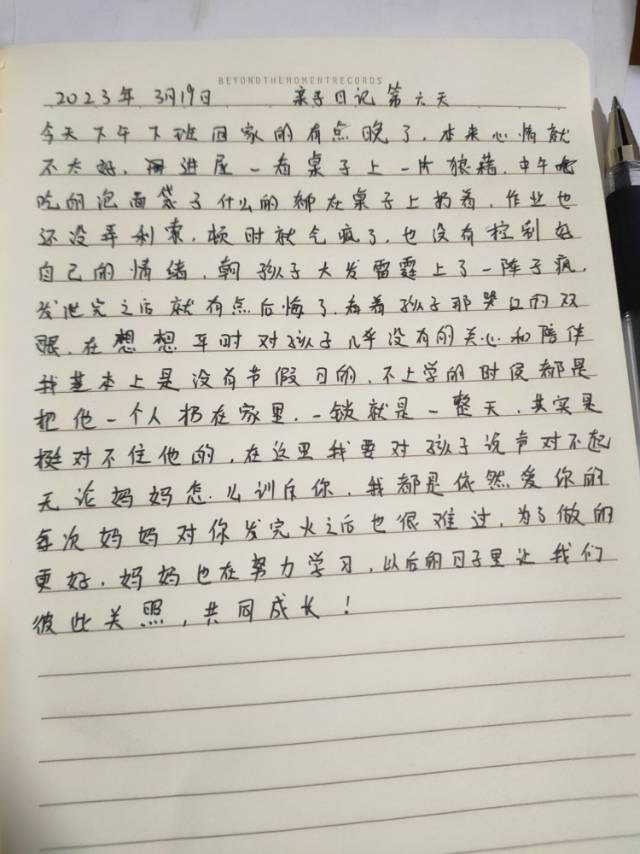 BEYONDTHEMOMENTRECORDS
2023年 3月19日 亲子日记 第六天
今天下午下班回家的有点晚了，本来心情就
不太好，进屋一看桌子上一片狼藉，中午
吃的泡面袋子什么的都在桌子上扔着，作业也
还没弄利索，顿时就气疯了，也没有控制好
自己的情绪，朝孩子大发雷霆上了一阵子疯，
发泄完之后就有点后悔了，看着孩子那哭红的双
眼，在想想平时对孩子几乎没有的关心和陪伴
我基本上是没有节假日的，不上学的时侯都是
把他一个人扔在家里，一锁就是一整天，其实是
挺对不住他的，在这里我要对孩子说声对不起
无论妈妈怎么训斥你，我都是依然爱你的
每次妈妈对你发完火之后也很难过，为了做的
更好，妈妈也在努力学习，以后的日子里让我们
彼此关照，共同成长！